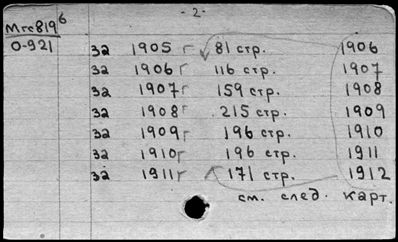 - 2 -
Мгс819б
0-921
за 1905 г 81 стр. 1906
за 1906 г 116 стр. 1907
за 1907 г 159 стр. 1908
за 1908 г 215 стр. 1909
за 1909 г 196 стр. 1910
за 1910 г 196 стр. 1911
за 1911 г 171 стр. 1912
см. след. карт.